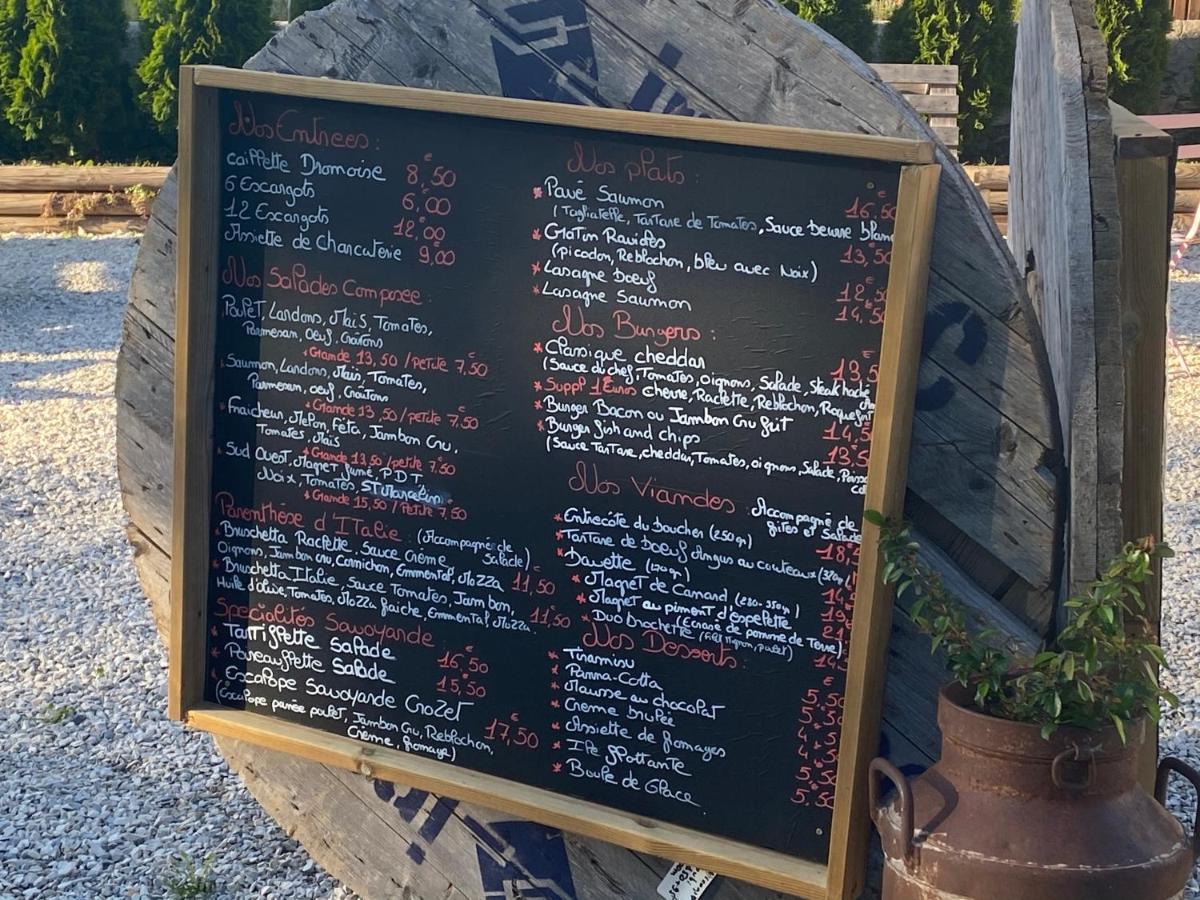 Nos Entrees :
caillette Dromoise 8,50€
6 Escargots 6,00
12 Escargots 12,00
Assiette de Charcuterie 9,00
Nos Salades Composee :
Poulet, Lardons, Maïs, Tomates,
Parmesan, Oeuf, Croûtons
* Grande 13,50 / Petite 7,50
Saumon, Lardons, Maïs, Tomates,
Parmesan, oeuf, Croutons
* Grande 13,50 / petite 7,50
Fraicheur, Melon, Feta, Jambon Cru,
Tomates, Maïs
* Grande 13,50 / petite 7,50
Sud Ouest, Magret fumé, P.D.T,
Noix, Tomates, ST Marcellin
* Grande 15,50 / Petite 7,50
Parenthèse d'Italie : (Accompagnée de Salade)
* Bruschetta Raclette, Sauce Crème
Oignons, Jambon cru, Cornichon, Emmental, Mozza 11,50€
* Bruschetta Italie, Sauce Tomates, Jambon,
Huile d'olive, Tomates, Mozza fraiche, Emmental, Mozza. 11,50€
Specialités Savoyarde
* Tartiflette Salade 16,50€
* Poireauflette Salade 15,50
* Escalope Savoyarde Crozet
(Escalope panée poulet, Jambon Cru, Reblochon, 17,50€
Crème, fromage)
Nos Plats :
* Pavé Saumon 16,50€
(Tagliatelle, Tartare de Tomates, Sauce beurre blanc
* Gratin Ravioles 13,50
(picodon, Reblochon, bleu avec Noix)
* Lasagne boeuf 12,50
* Lasagne Saumon 14,50
Nos Burgers :
* Classique cheddar 13,5
(Sauce du chef, Tomates, oignons, Salade, Steak haché
* Suppl 1 Euros chèvre, Raclette, Reblochon, Roquefort
* Burger Bacon ou Jambon Cru frit 14,5
* Burger fish and chips 13,5
(Sauce Tartare, cheddar, Tomates, oignons, Salade, Poisso
Nos Viandes : Accompagné de
frites et Salade
* Entrecôte du boucher (250gr) 18,
* Tartare de boeuf Angus au couteaux
* Bavette
* Magret de Canard (280-350gr)
* Magret au piment d'espelette
(Ecrasé de pomme de Terre)
* Duo brochette (Filet mignon, poulet) 14,
Nos Desserts :
* Tiramisu 5.50
* Panna-Cotta
* Mousse au chocolat
* Crème brulée
* Assiette de fromages
* Ile flottante 5.50
* Boule de Glace